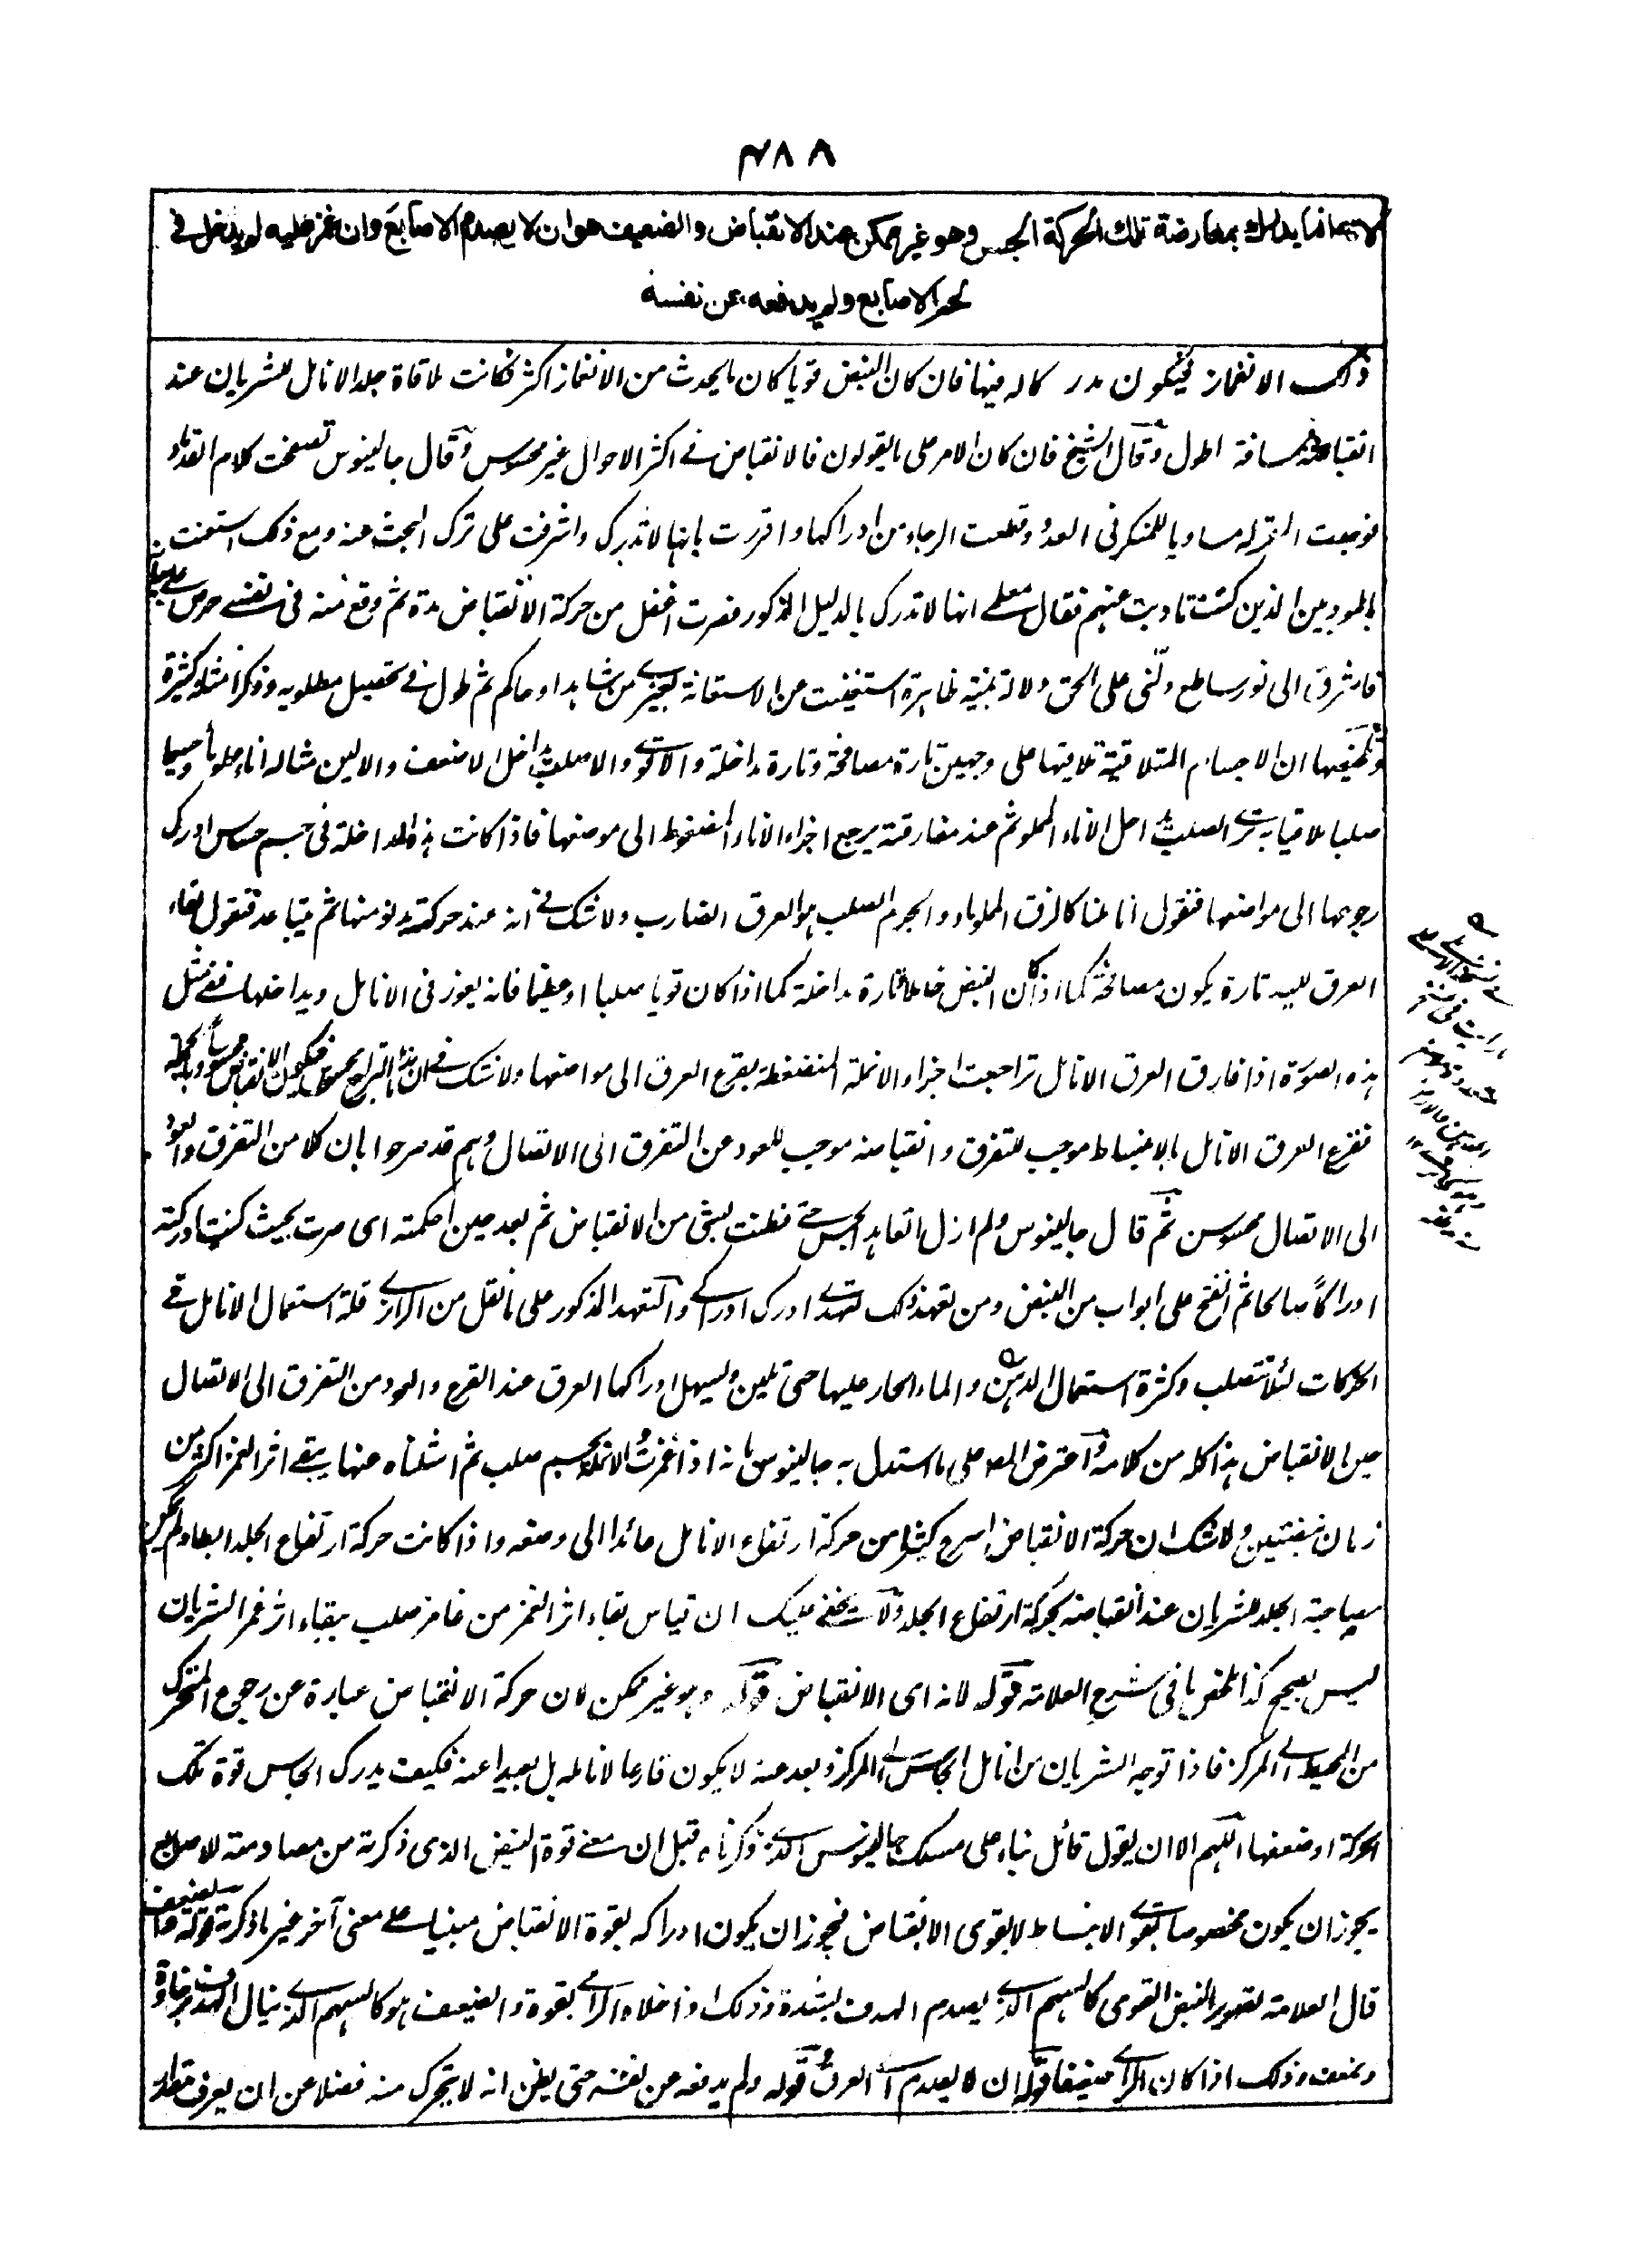 ٤٨٨
لانه انما يدرك بمعارضة تلك الحركة الجس وهو غير ممكن عند الانقباض والضعيف هو ان لا يصدم الاصابع وان غمز عليه لم يدخل فى
لحم الاصابع ولم يدفعه عن نفسه
ذلك الانغماز فيكون مدركا له فيها فان كان النبض قويا كان ما يحدث من الانغماز اكثر فكانت ملاقاة جلد الانامل للشريان عند
انقباضه مسافة اطول وقال الشيخ فان كان الامر على ما يقولون فالانقباض فى اكثر الاحوال غير محسوس وقال جالينوس تصفحت كلام القدماء
فوجعت المقر له مساويا للمنكر فى العدد وقطعت الرجاء من ادراكها واقررت بانها لا تدرك واشرفت على ترك البحث عنه ومع ذلك استعنت
بالمودبين الذين كنت تادبت عنهم فقال معلمى انها لا تدرك بالدليل المذكور فصرت اغفل من حركة الانقباض مدة ثم وقع منه فى نفسى حرص عليها
فاشرق الى نور ساطع دلنى على الحق دلالة بينة ظاهرة استغنيت عن الاستعانة بخبر من شاهد او حاكم ثم طول فى تحصيل مطلوبه وذكر امثلة كثيرة
وتلخيصها ان الاجسام المتلاقية تلاقيها على وجهين تارة مصافحة وتارة مداخلة والاقوى والاصلب يداخل الاضعف والالين مثاله اناء مملو ماء وجسما
صلبا ملاقيا به يرى الصلب يداخل الاناء المملو ثم عند مفارقته يرجع اجزاء الاناء المضغوط الى موضعها فاذا كانت هذه المداخلة فى جسم حساس ادرك
رجوعها الى مواضعها فنقول اناملنا كالزق المملو ماء والجرم الصلب هو العرق الضارب ولا شك فى انه عند حركته يدنو منها ثم يتباعد فنقول لقاء
العرق لليد تارة يكون مصافحة كما اذا كان النبض خاملا وتارة مداخلة كما اذا كان قويا صلبا او عظيما فانه يغوز فى الانامل ويداخلها ففى مثل
هذه الصورة اذا فارق العرق الانامل تراجعت اجزاء الانملة المنضغطة بقرع العرق الى مواضعها ولا شك فى ان هذا التراجع محسوس فيكون الانقباض محسوسا وبالجملة
فقرع العرق الانامل بالانبساط موجب للتفرق وانقباضه موجب للعود عن التفرق الى الاتصال وهم قد صرحوا بان كلا من التفرق والعود
الى الاتصال محسوسن ثم قال جالينوس ولم ازل اتعاهد الجس حتى فطنت لشئ من الانقباض ثم بعد حين احكمته اى صرت بحيث كنت ادركته
ادراكا صالحا ثم انفتح على ابواب من النبض ومن تعهد ذلك تعهدى ادرك ادراكى والتعهد المذكور على ما نقل من الرازى قلة استعمال الانامل فى
الحركات لئلا تتصلب وكثرة استعمال الدهن والماء الحار عليها حتى تلين ويسهل ادراكها العرق عند القرع والعود من التفرق الى الاتصال
حين الانقباض هذا كله من كلامه واعترض المص على ما استدل به جالينوس بانه اذا غمزت الانملة بجسم صلب ثم اشلناه عنها يبقى اثر الغمز اكثر من
زمان نبضتين ولا شك ان حركة الانقباض اسرع كثيرا من حركة ارتفاع الانامل عائدا الى وضعه واذا كانت حركة ارتفاع الجلد ابطا ولم يكن
مصاحبة الجلد للشريان عند انقباضه بحركة ارتفاع الجلد ولا يخفى عليك ان قياس بقاء اثر الغمز من غامز صلب ببقاء اثر غمز الشريان
ليس بصحيح كذا لخص ما فى شرح العلامة قوله لانه اى الانقباض قوله وهو غير ممكن لان حركة الانقباض عبارة عن رجوع المتحرك
من المحيط الى المركز فاذا توجه الشريان من انامل الجاس الى المركز وبعد عنه لا يكون قارعا لانامله بل بعيدا عنه فكيف يدرك الجاس قوة تلك
الحركة او ضعفها اللهم الا ان يقول قائل بناء على مسلك جالينوس الذى ذكرناه قبل ان معنى قوة النبض الذى ذكرته من مصادمته للاصابع
يجوز ان يكون مخصوصا بقوى الانبساط لا بقوى الانقباض فيجوز ان يكون ادراكه بقوة الانقباض مبنيا على معنى آخر غير ما ذكرته قوله والضعيف
قال العلامة تصوير النبض القوى كالسهم الذى يصدم الهدف بشدة وذلك اذا خلاه الرامى بقوة والضعيف هو كالسهم الذى ينال الهدف برخاوة
وبضعف وذلك اذا كان الرامى ضعيفا قوله ان لا يصدم اى العرق قوله ولم يدفعه عن نفسه حتى يظن انه لا يتحرك منه فضلا عن ان يعرف مقدار